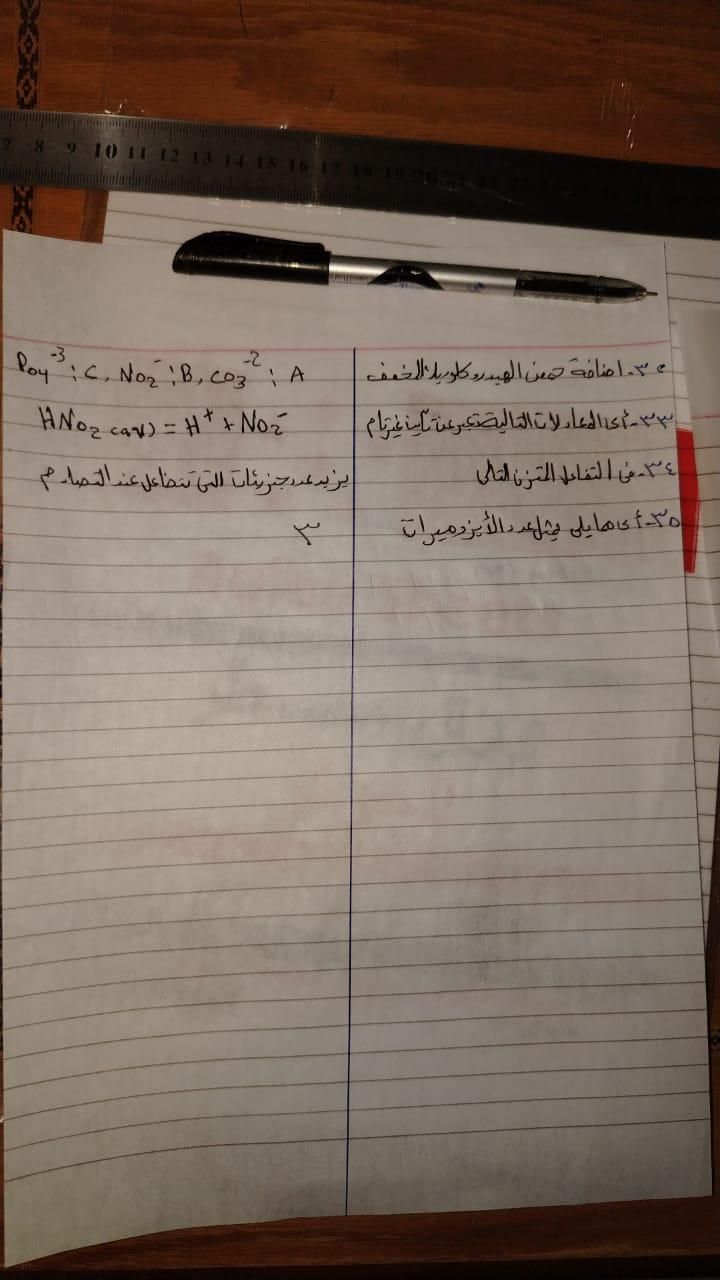 7 8 9 10 11 12 13 14 15 16 17 18 19 20
٣٢- اضافة حمض الهيدروكلوريك المخفف
A : CO3-2 , B : NO2- , C : PO4-3
٣٣- أى المعادلات التالية تعبر عن تأين غير تام
HNO2 (aq) = H+ + NO2-
٣٤- فى التفاعل المتزن التالى
يزيد عدد جزيئات التى تتفاعل عند التصادم
٣٥- أى مما يلى يمثل عدد الأيزوميرات
٣